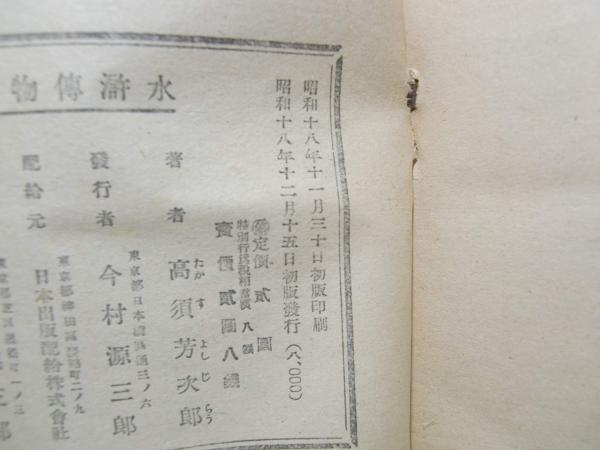 水滸傳物
昭和十八年十一月三十日初版印刷
昭和十八年十二月十五日初版發行(八、000)
定價貳圓
特別行爲稅相當額八錢
賣價貳圓八錢
著者 高須芳次郎
たかすよしじらう
東京都日本橋區通三ノ六
發行者 今村源三郎
東京都神田區淡路町二ノ九
配給元 日本出版配給株式會社